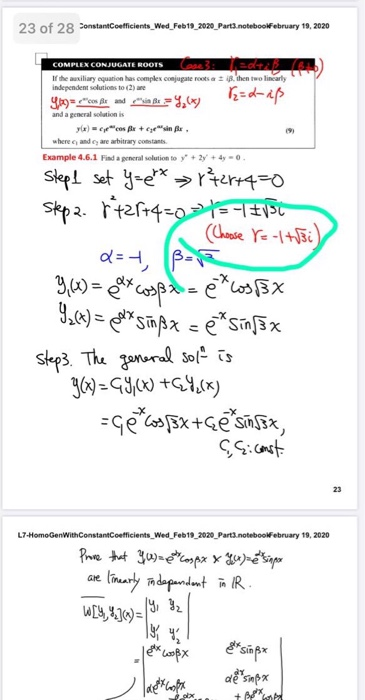 23 of 28
ConstantCoefficients_Wed_Feb19_2020_Part3.notebook February 19, 2020
COMPLEX CONJUGATE ROOTS
Case 3: r₁=α+iβ (β≠0)
r₂=α-iβ
If the auxiliary equation has complex conjugate roots α ± iβ, then two linearly
independent solutions to (2) are
y₁(x) = e^{αx} cos βx and e^{αx} sin βx = y₂(x)
and a general solution is
y(x) = c₁e^{αx} cos βx + c₂e^{αx} sin βx , (9)
where c₁ and c₂ are arbitrary constants.
Example 4.6.1 Find a general solution to y'' + 2y' + 4y = 0.
Step1 set y=e^{rx} ⇒ r²+2r+4=0
Step 2. r²+2r+4=0 ⇒ r= -1±√3i
(Choose r= -1+√3i)
α=-1, β=√3
y₁(x) = e^{αx} cosβx = e^{-x} cos√3x
y₂(x) = e^{αx} sinβx = e^{-x} sin√3x
Step3. The general solⁿ is
y(x) = C₁y₁(x) + C₂y₂(x)
= C₁e^{-x} cos√3x + C₂e^{-x} sin√3x,
C₁, C₂: const.
23
L7-HomoGenWithConstantCoefficients_Wed_Feb19_2020_Part3.notebook February 19, 2020
Prove that y₁(x)=e^{αx}cosβx & y₂(x)=e^{αx}sinβx
are linearly independent in IR.
W[y₁,y₂](x) = | y₁ y₂
| y₁' y₂'
= | e^{αx} cosβx e^{αx} sinβx
| αe^{αx} cosβx αe^{αx} sinβx
+ βe^{αx} cosβx